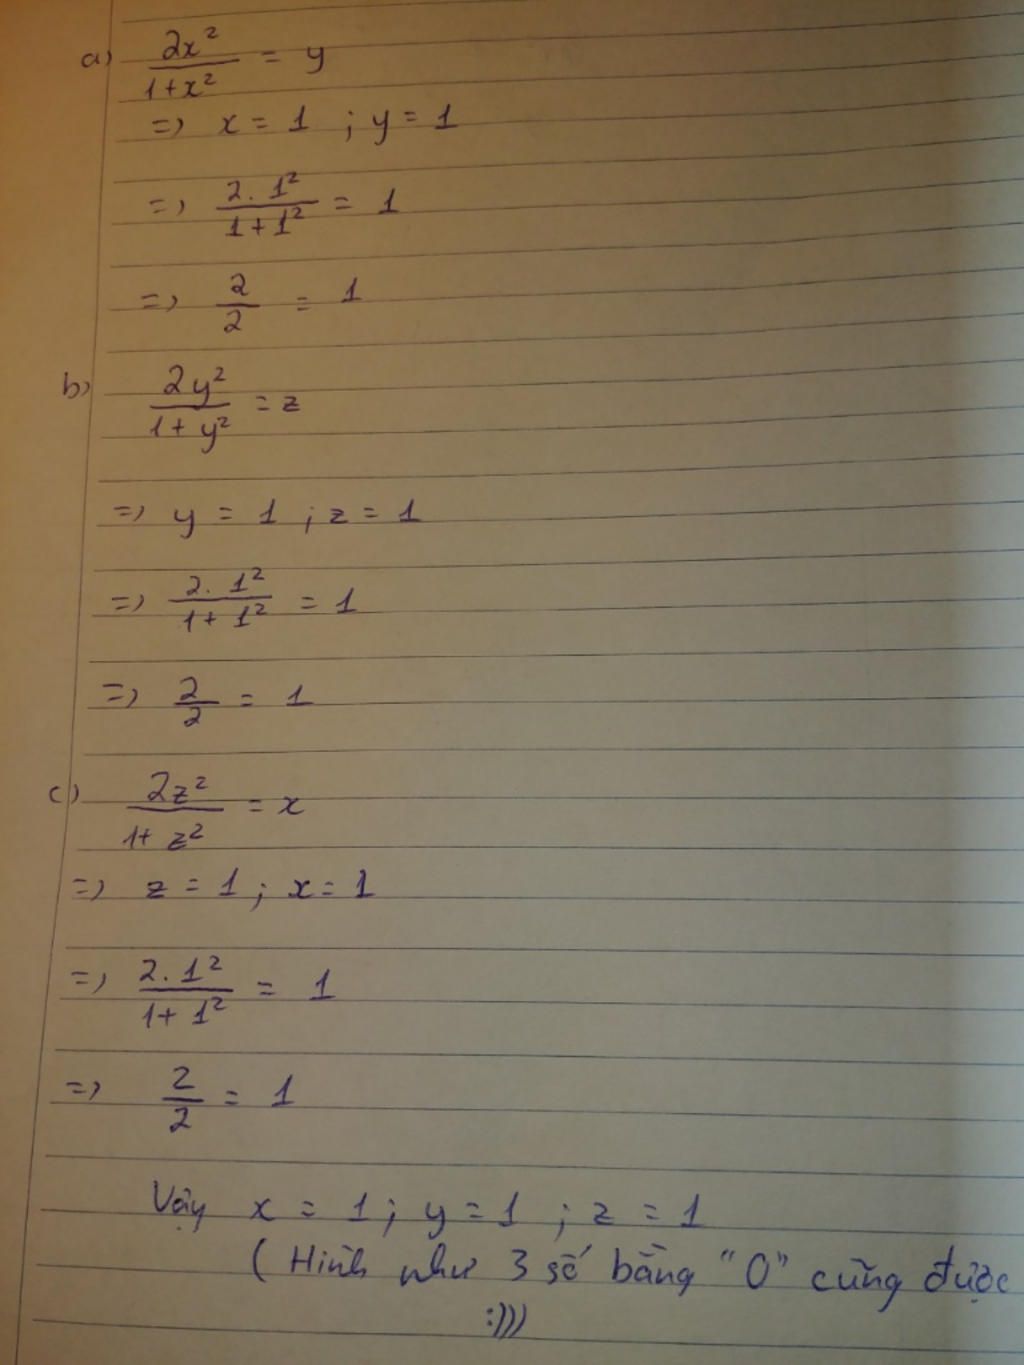 a) 2x²/(1+x²) = y
=> x = 1 ; y = 1
=> 2.1²/(1+1²) = 1
=> 2/2 = 1
b) 2y²/(1+y²) = z
=> y = 1 ; z = 1
=> 2.1²/(1+1²) = 1
=> 2/2 = 1
c) 2z²/(1+z²) = x
=> z = 1 ; x = 1
=> 2.1²/(1+1²) = 1
=> 2/2 = 1
Vậy x = 1 ; y = 1 ; z = 1
( Hình như 3 số bằng "0" cũng được
:)))